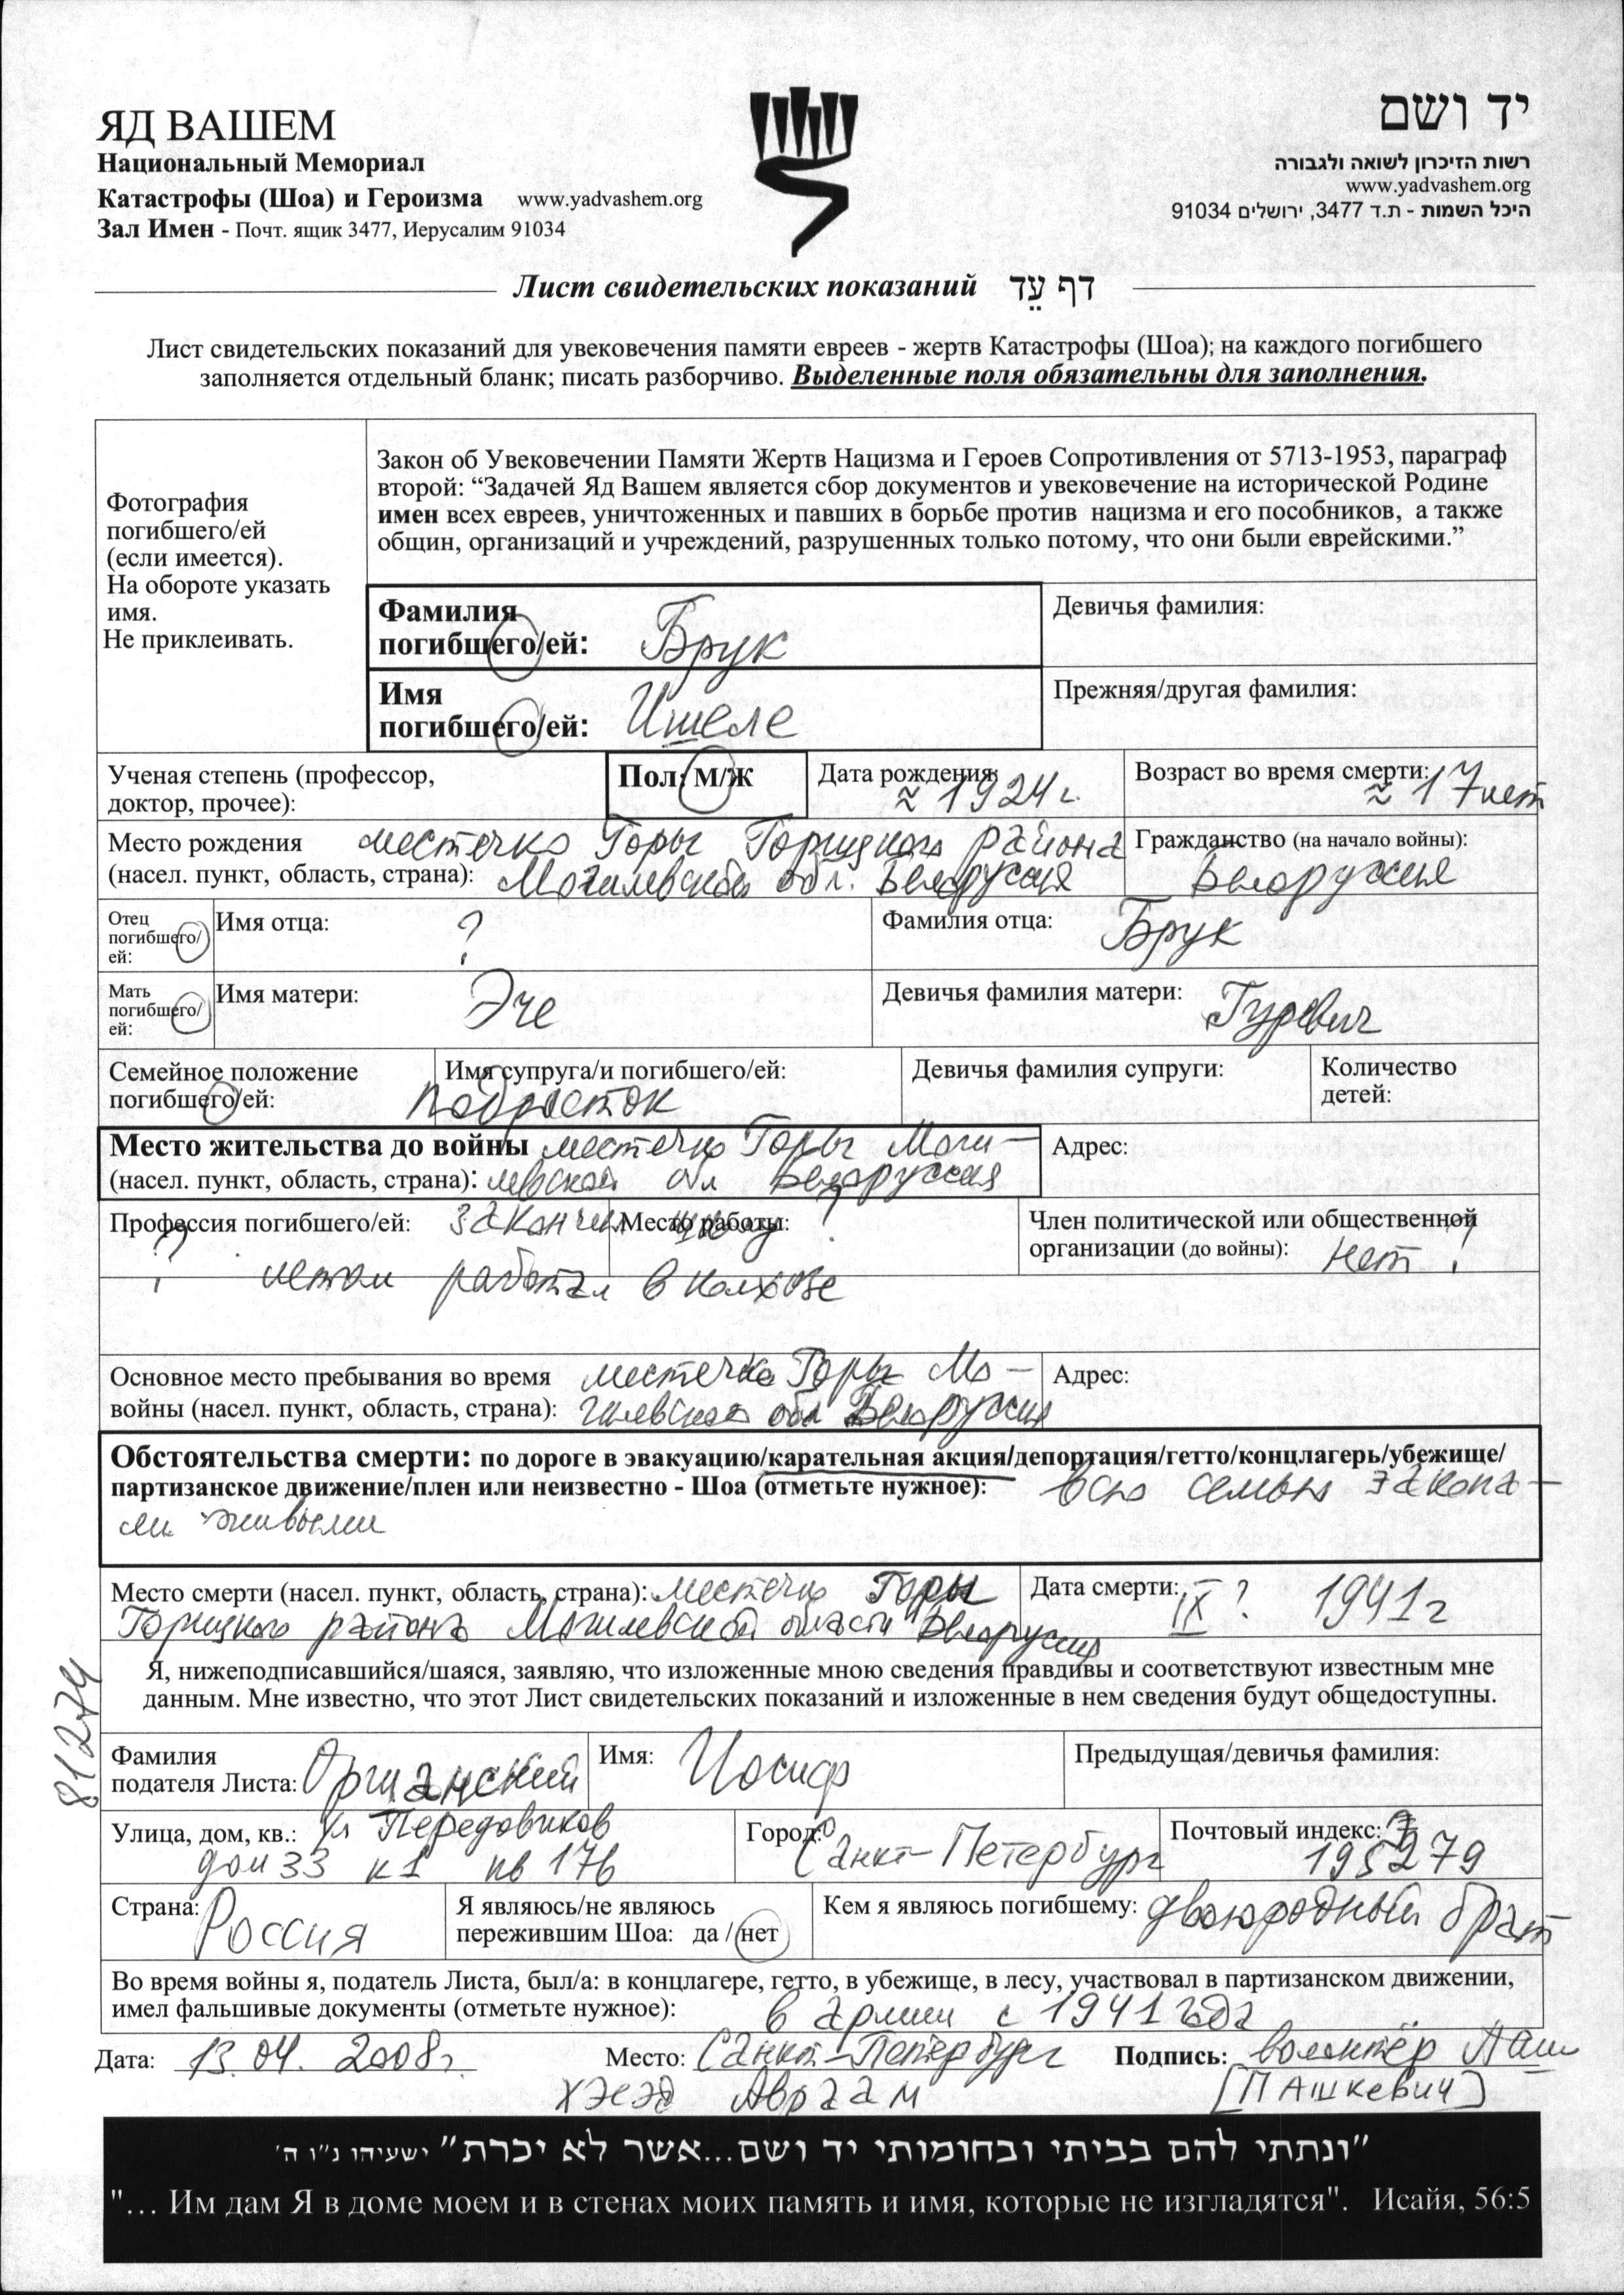 ЯД ВАШЕМ
Национальный Мемориал
Катастрофы (Шоа) и Героизма www.yadvashem.org
Зал Имен - Почт. ящик 3477, Иерусалим 91034
יד ושם
רשות הזיכרון לשואה ולגבורה
www.yadvashem.org
היכל השמות - ת.ד 3477, ירושלים 91034
Лист свидетельских показаний דף עֵד
Лист свидетельских показаний для увековечения памяти евреев - жертв Катастрофы (Шоа); на каждого погибшего
заполняется отдельный бланк; писать разборчиво. Выделенные поля обязательны для заполнения.
Фотография
погибшего/ей
(если имеется).
На обороте указать
имя.
Не приклеивать.
Закон об Увековечении Памяти Жертв Нацизма и Героев Сопротивления от 5713-1953, параграф
второй: “Задачей Яд Вашем является сбор документов и увековечение на исторической Родине
имен всех евреев, уничтоженных и павших в борьбе против нацизма и его пособников, а также
общин, организаций и учреждений, разрушенных только потому, что они были еврейскими.”
Фамилия
погибшего/ей: Брук
Девичья фамилия:
Имя
погибшего/ей: Ишеле
Прежняя/другая фамилия:
Ученая степень (профессор,
доктор, прочее):
Пол: М/Ж
Дата рождения:
≈ 1924 г.
Возраст во время смерти:
≈ 17 лет
Место рождения местечко Горы Горицкого района
(насел. пункт, область, страна): Могилевской обл. Белоруссия
Гражданство (на начало войны):
Белоруссия
Отец
погибшего/
ей:
Имя отца: ?
Фамилия отца: Брук
Мать
погибшего/
ей:
Имя матери: Эче
Девичья фамилия матери: Гуревич
Семейное положение
погибшего/ей: подросток
Имя супруга/и погибшего/ей:
Девичья фамилия супруги:
Количество
детей:
Место жительства до войны местечко Горы Моги-
(насел. пункт, область, страна): левской обл Белоруссия
Адрес:
Профессия погибшего/ей: закончил школу ?
Место работы:
? летом работал в колхозе
Член политической или общественной
организации (до войны): нет ?
Основное место пребывания во время местечко Горы Мо-
войны (насел. пункт, область, страна): гилевская обл Белоруссия
Адрес:
Обстоятельства смерти: по дороге в эвакуацию/карательная акция/депортация/гетто/концлагерь/убежище/
партизанское движение/плен или неизвестно - Шоа (отметьте нужное): всю семью закопа-
ли живыми
Место смерти (насел. пункт, область, страна): местечко Горы
Горицкого района Могилевской области Белоруссия
Дата смерти: IX ? 1941 г
Я, нижеподписавшийся/шаяся, заявляю, что изложенные мною сведения правдивы и соответствуют известным мне
данным. Мне известно, что этот Лист свидетельских показаний и изложенные в нем сведения будут общедоступны.
81274
Фамилия
подателя Листа: Оршанский
Имя: Иосиф
Предыдущая/девичья фамилия:
Улица, дом, кв.: ул Передовиков
дом 33 к1 кв 176
Город: Санкт-Петербург
Почтовый индекс:
195279
Страна: Россия
Я являюсь/не являюсь
пережившим Шоа: да / нет
Кем я являюсь погибшему: двоюродный брат
Во время войны я, податель Листа, был/а: в концлагере, гетто, в убежище, в лесу, участвовал в партизанском движении,
имел фальшивые документы (отметьте нужное): в армии с 1941 года
Дата: 13.04. 2008г. Место: Санкт-Петербург Подпись: волонтёр Паш
Хэсэд Авраам [ПАШКЕВИЧ]
"ונתתי להם בביתי ובחומותי יד ושם...אשר לא יכרת" ישעיהו נ"ו ה'
"... Им дам Я в доме моем и в стенах моих память и имя, которые не изгладятся". Исайя, 56:5